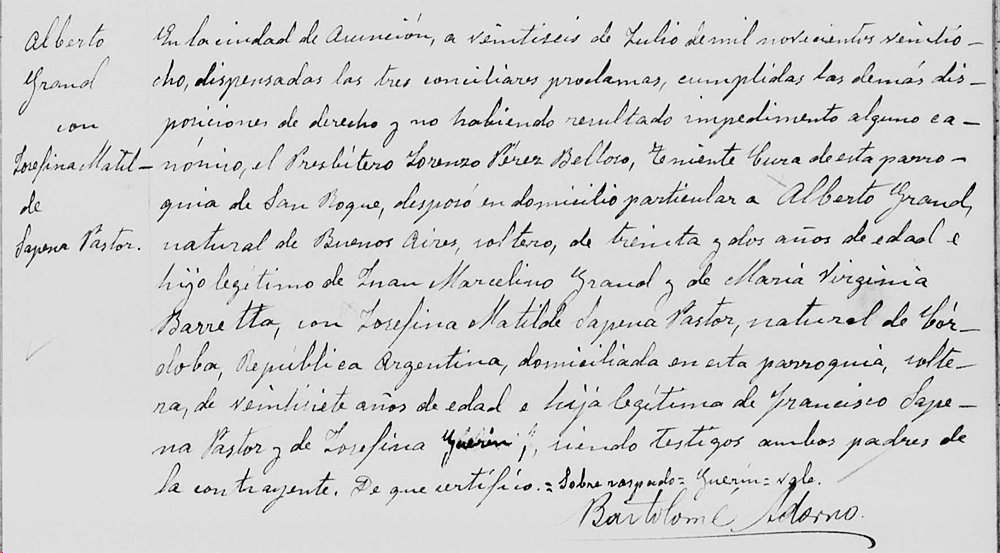 Alberto
Grand
con
Josefina Matil-
de
Sapena Pastor.
En la ciudad de Asunción, a veintiseis de Julio de mil novecientos veintio-
cho, dispensadas las tres conciliares proclamas, cumplidas las demás dis-
posiciones de derecho y no habiendo resultado impedimento alguno ca-
nónico, el Presbítero Lorenzo Pérez Belloso, Teniente Cura de esta parro-
quia de San Roque, desposó en domicilio particular a Alberto Grand,
natural de Buenos Aires, soltero, de treinta y dos años de edad e
hijo legítimo de Juan Marcelino Grand y de María Virginia
Barretta, con Josefina Matilde Sapena Pastor, natural de Cór-
doba, República Argentina, domiciliada en esta parroquia, solte-
ra, de veintisiete años de edad e hija legítima de Francisco Sape-
na Pastor y de Josefina Guerin, siendo testigos ambos padres de
la contrayente. De que certifico.= Sobre raspado= Guerin= vale.
Bartolomé Adorno.